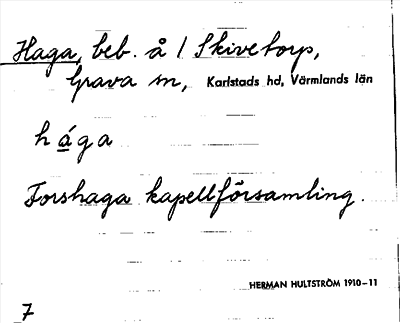 Haga, beb. å / Skivetorp,
Grava sn, Karlstads hd, Värmlands län
håga
Forshaga kapellförsamling.
HERMAN HULTSTRÖM 1910-11
7